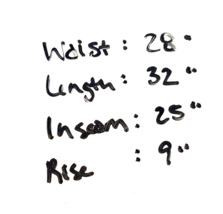 Waist : 28"
Length : 32"
Inseam : 25"
Rise : 9"